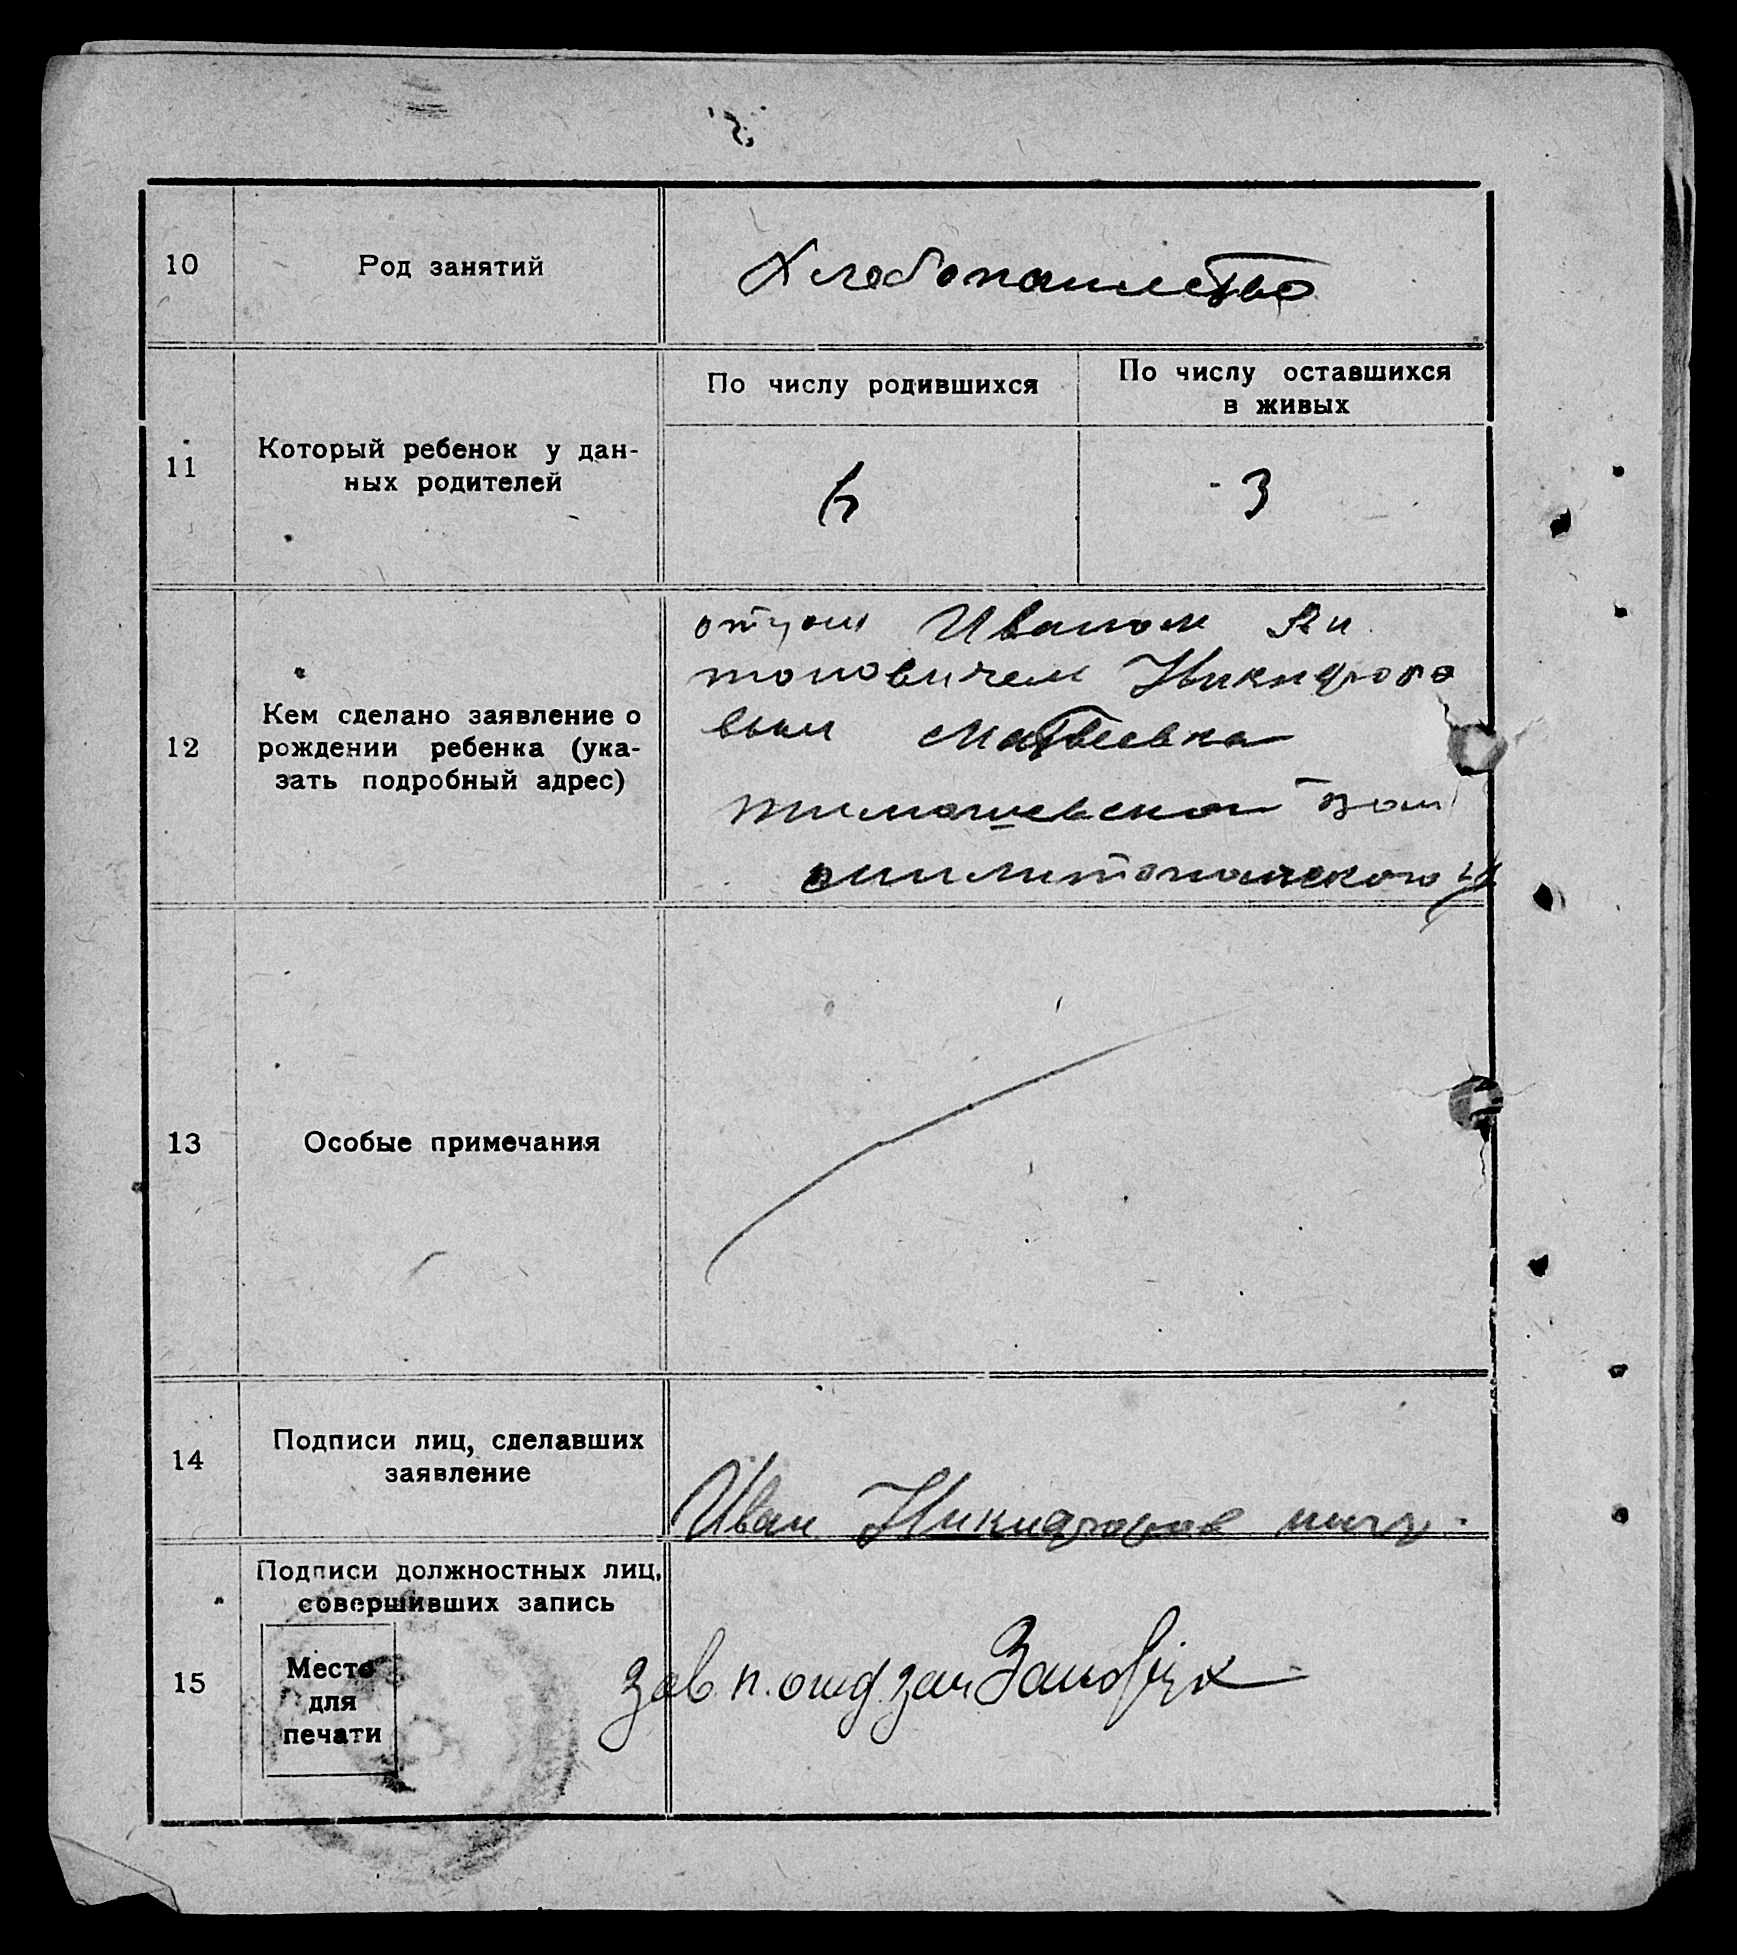 10
Род занятий
Хлебопашество
11
Который ребенок у дан-
ных родителей
По числу родившихся
По числу оставшихся
в живых
3
12
Кем сделано заявление о
рождении ребенка (ука-
зать подробный адрес)
отцом Иваном
Никифоро
вым Матвеевка
тимошевской вол
13
Особые примечания
14
Подписи лиц, сделавших
заявление
Иван Никифоров
15
Подписи должностных лиц,
совершивших запись
Место
для
печати
зав. п. отд заг